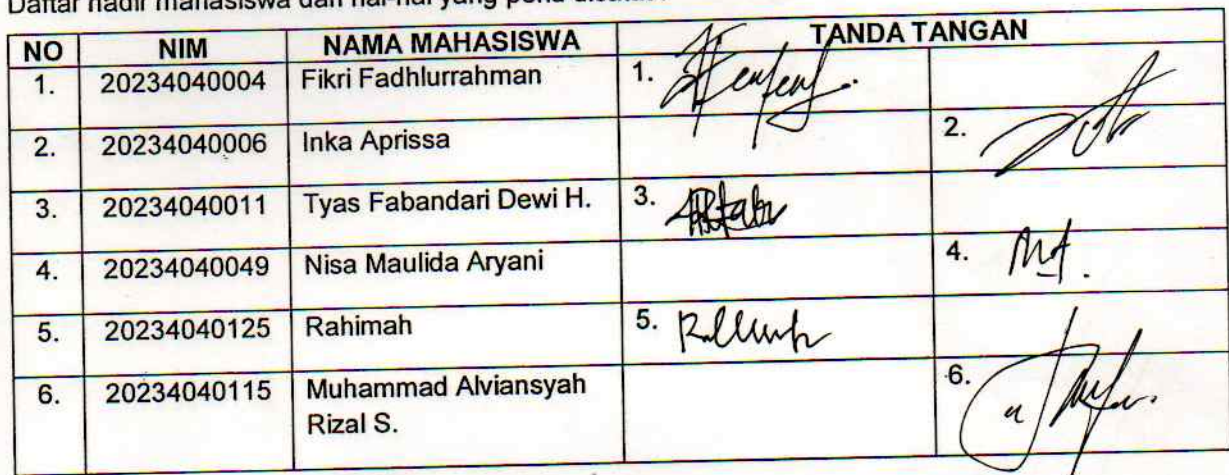 Daftar hadir mahasiswa dan hal-hal yang perlu
NO NIM NAMA MAHASISWA TANDA TANGAN
1. 20234040004 Fikri Fadhlurrahman 1.
2. 20234040006 Inka Aprissa 2.
3. 20234040011 Tyas Fabandari Dewi H. 3.
4. 20234040049 Nisa Maulida Aryani 4.
5. 20234040125 Rahimah 5.
6. 20234040115 Muhammad Alviansyah 6.
Rizal S.